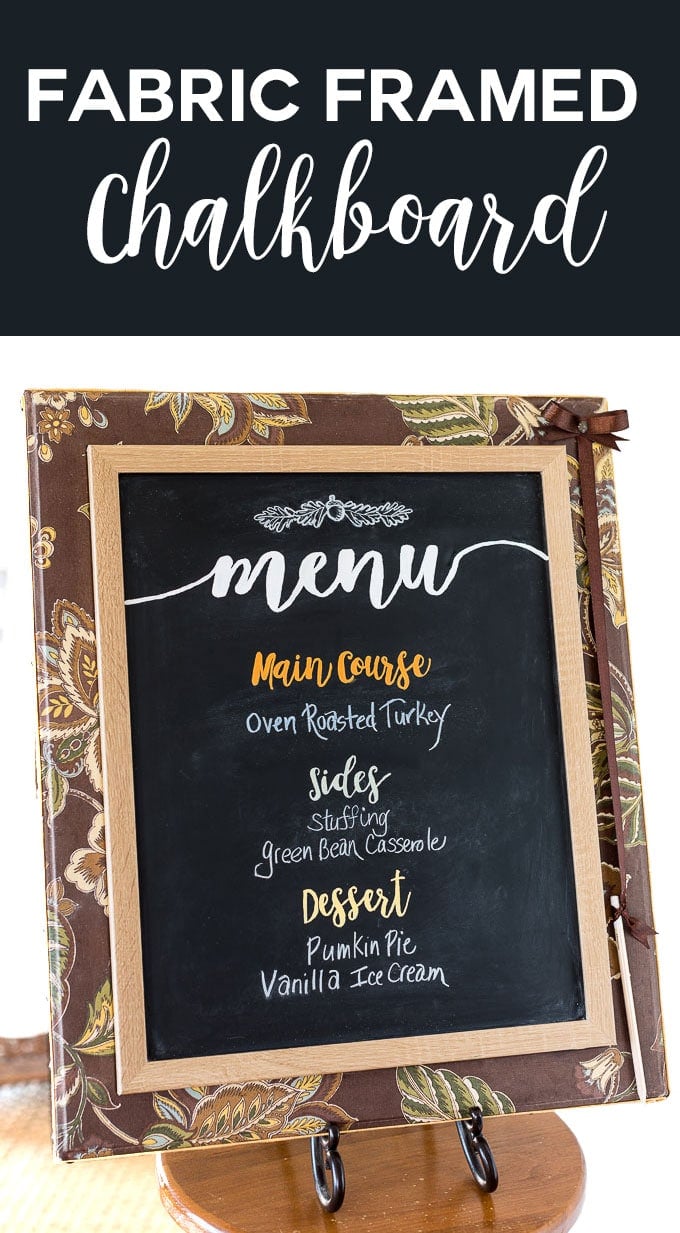 FABRIC FRAMED
Chalkboard
menu
Main Course
Oven Roasted Turkey
Sides
Stuffing
Green Bean Casserole
Dessert
Pumkin Pie
Vanilla Ice Cream